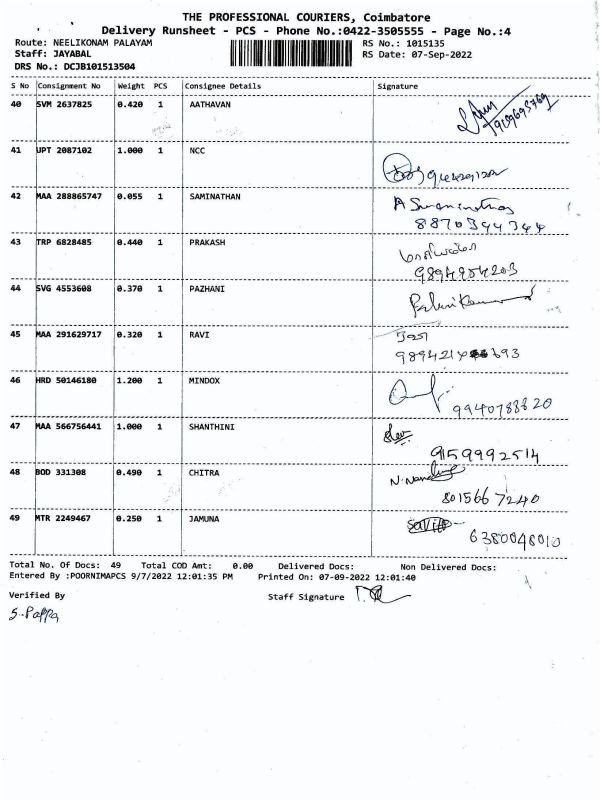 THE PROFESSIONAL COURIERS, Coimbatore
Delivery Runsheet - PCS - Phone No.:0422-3505555 - Page No.:4
Route: NEELIKONAM PALAYAM RS No.: 1015135
Staff: JAYABAL RS Date: 07-Sep-2022
DRS No.: DCJB101513504
S No Consignment No Weight PCS Consignee Details Signature
40 SVM 2637825 0.420 1 AATHAVAN
41 UPT 2087102 1.000 1 NCC
42 MAA 288865747 0.055 1 SAMINATHAN
8870344344
43 TRP 6828485 0.440 1 PRAKASH
9894954203
44 SVG 4553608 0.370 1 PAZHANI
45 MAA 291629717 0.320 1 RAVI
46 HRD 50146180 1.200 1 MINDOX
9940788820
47 MAA 566756441 1.000 1 SHANTHINI
9159992514
48 BOD 331308 0.490 1 CHITRA
8015667240
49 MTR 2249467 0.250 1 JAMUNA
6380048010
Total No. Of Docs: 49 Total COD Amt: 0.00 Delivered Docs: Non Delivered Docs:
Entered By :POORNIMAPCS 9/7/2022 12:01:35 PM Printed On: 07-09-2022 12:01:40
Verified By Staff Signature
S. Pappa